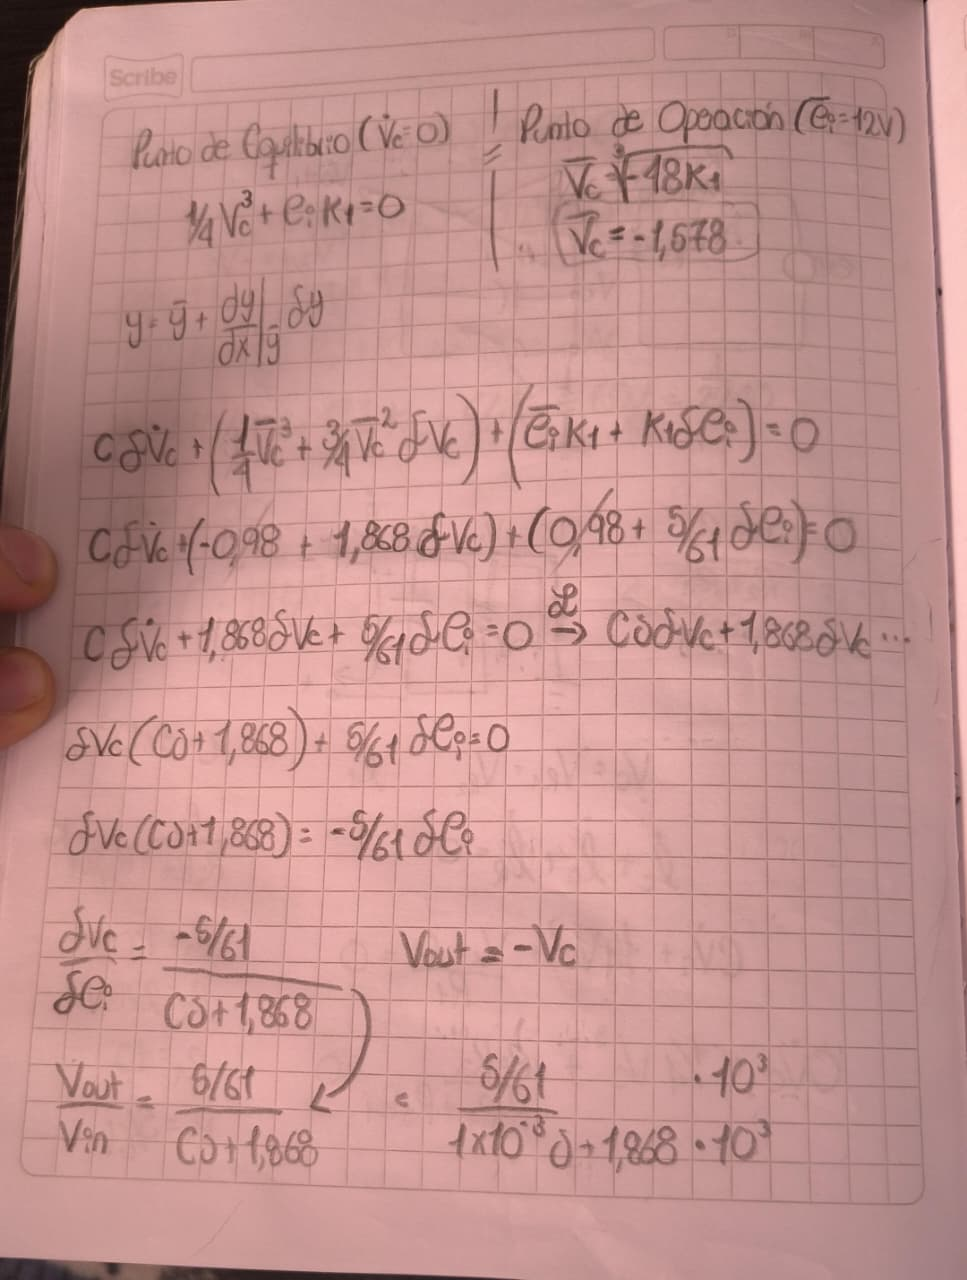 Scribe
Punto de Equilibrio (V̇c=0)
¼Vc³ + eᵢK₁=0
Punto de Operación (ēᵢ=12V)
V̄c = ∛-48K₁
V̄c = -1,578
y = ȳ + dy/dx|ȳ δy
Cδv̇c + (1/4 V̄c³ + 3/4 V̄c² δVc) + (ēᵢK₁ + K₁δeᵢ) = 0
Cδv̇c + (-0,98 + 1,868 δVc) + (0,98 + 5/61 δeᵢ) = 0
Cδv̇c + 1,868δVc + 5/61 δeᵢ = 0 ℒ→ CsδVc + 1,868δVc ...
δVc (Cs + 1,868) + 5/61 δeᵢ = 0
δVc (Cs + 1,868) = -5/61 δeᵢ
δVc/δeᵢ = -5/61 / Cs + 1,868
Vout = -Vc
Vout/Vin = 5/61 / Cs + 1,868 = 5/61 · 10³ / 1x10⁻³ s + 1,868 · 10³